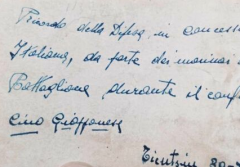 Ricordo della Difesa, in concess
Italiana, da parte dei marinai
Battaglione durante il conf
Cino Giapponese
Tientsin